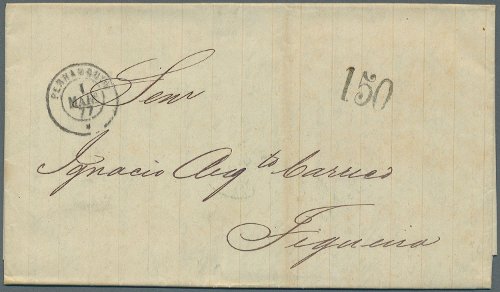 PERNAMBUCO
1
MAIO
77
150
Senr
Ignacio Augto Carriço
Figueira